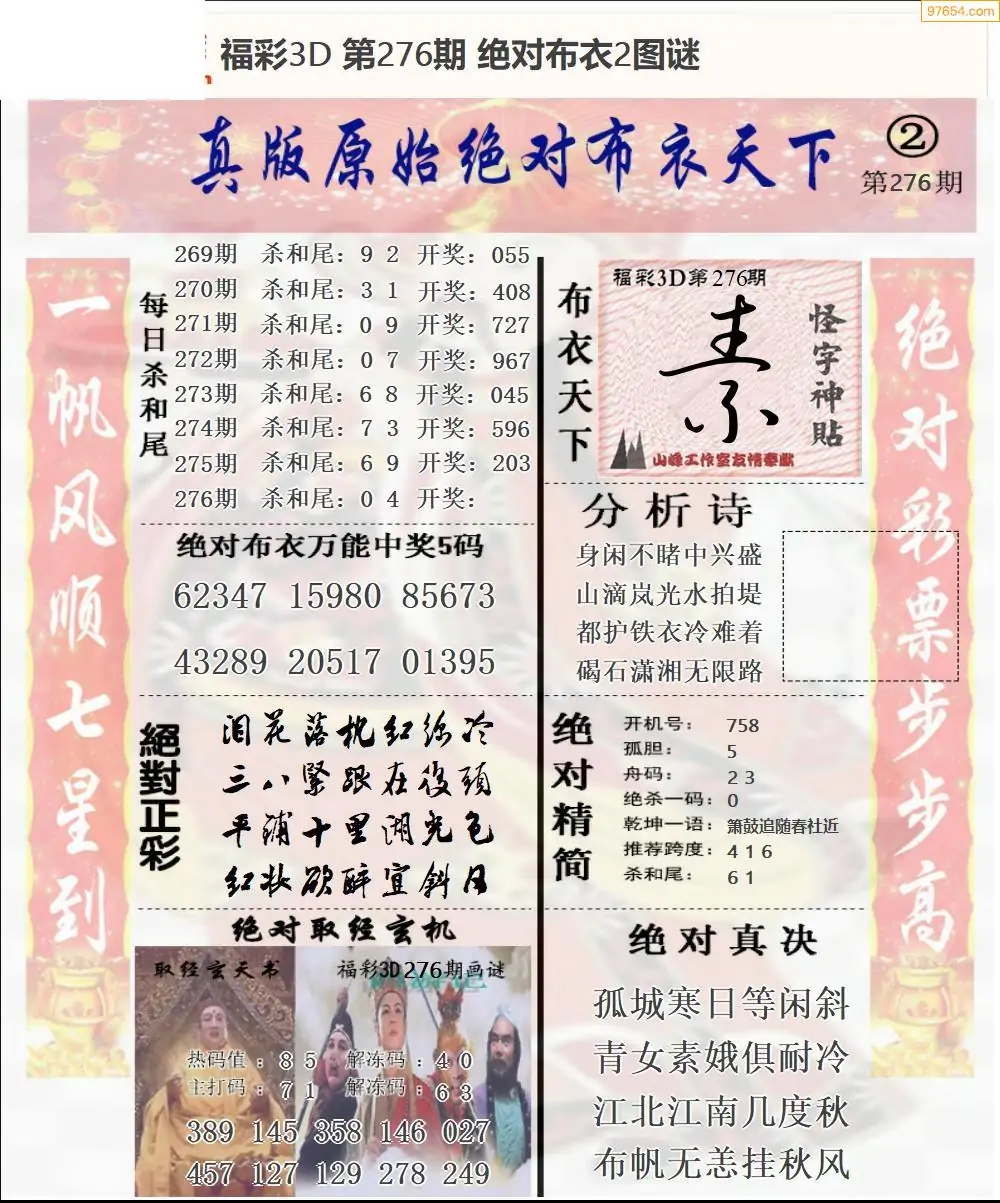 97654.com
福彩3D 第276期 绝对布衣2图谜
真版原始绝对布衣天下
②
第276期
一帆风顺七星到
每日杀和尾
269期 杀和尾：9 2 开奖：055
270期 杀和尾：3 1 开奖：408
271期 杀和尾：0 9 开奖：727
272期 杀和尾：0 7 开奖：967
273期 杀和尾：6 8 开奖：045
274期 杀和尾：7 3 开奖：596
275期 杀和尾：6 9 开奖：203
276期 杀和尾：0 4 开奖：
绝对布衣万能中奖5码
62347 15980 85673
43289 20517 01395
絕對正彩
泪花落枕红绵冷
三八緊跟在後頭
平鋪十里湖光色
红妆欲醉宜斜日
绝对取经玄机
取经玄天书
福彩3D276期画谜
热码值：8 5 解冻码：4 0
主打码：7 1 解冻码：6 3
389 145 358 146 027
457 127 129 278 249
布衣天下
福彩3D第276期
怪字神贴
山峰工作室友情奉献
分析诗
身闲不睹中兴盛
山滴岚光水拍堤
都护铁衣冷难着
碣石潇湘无限路
绝对精简
开机号：758
孤胆：5
舟码：2 3
绝杀一码：0
乾坤一语：箫鼓追随春社近
推荐跨度：4 1 6
杀和尾：6 1
绝对真决
孤城寒日等闲斜
青女素娥俱耐冷
江北江南几度秋
布帆无恙挂秋风
绝对彩票步步高